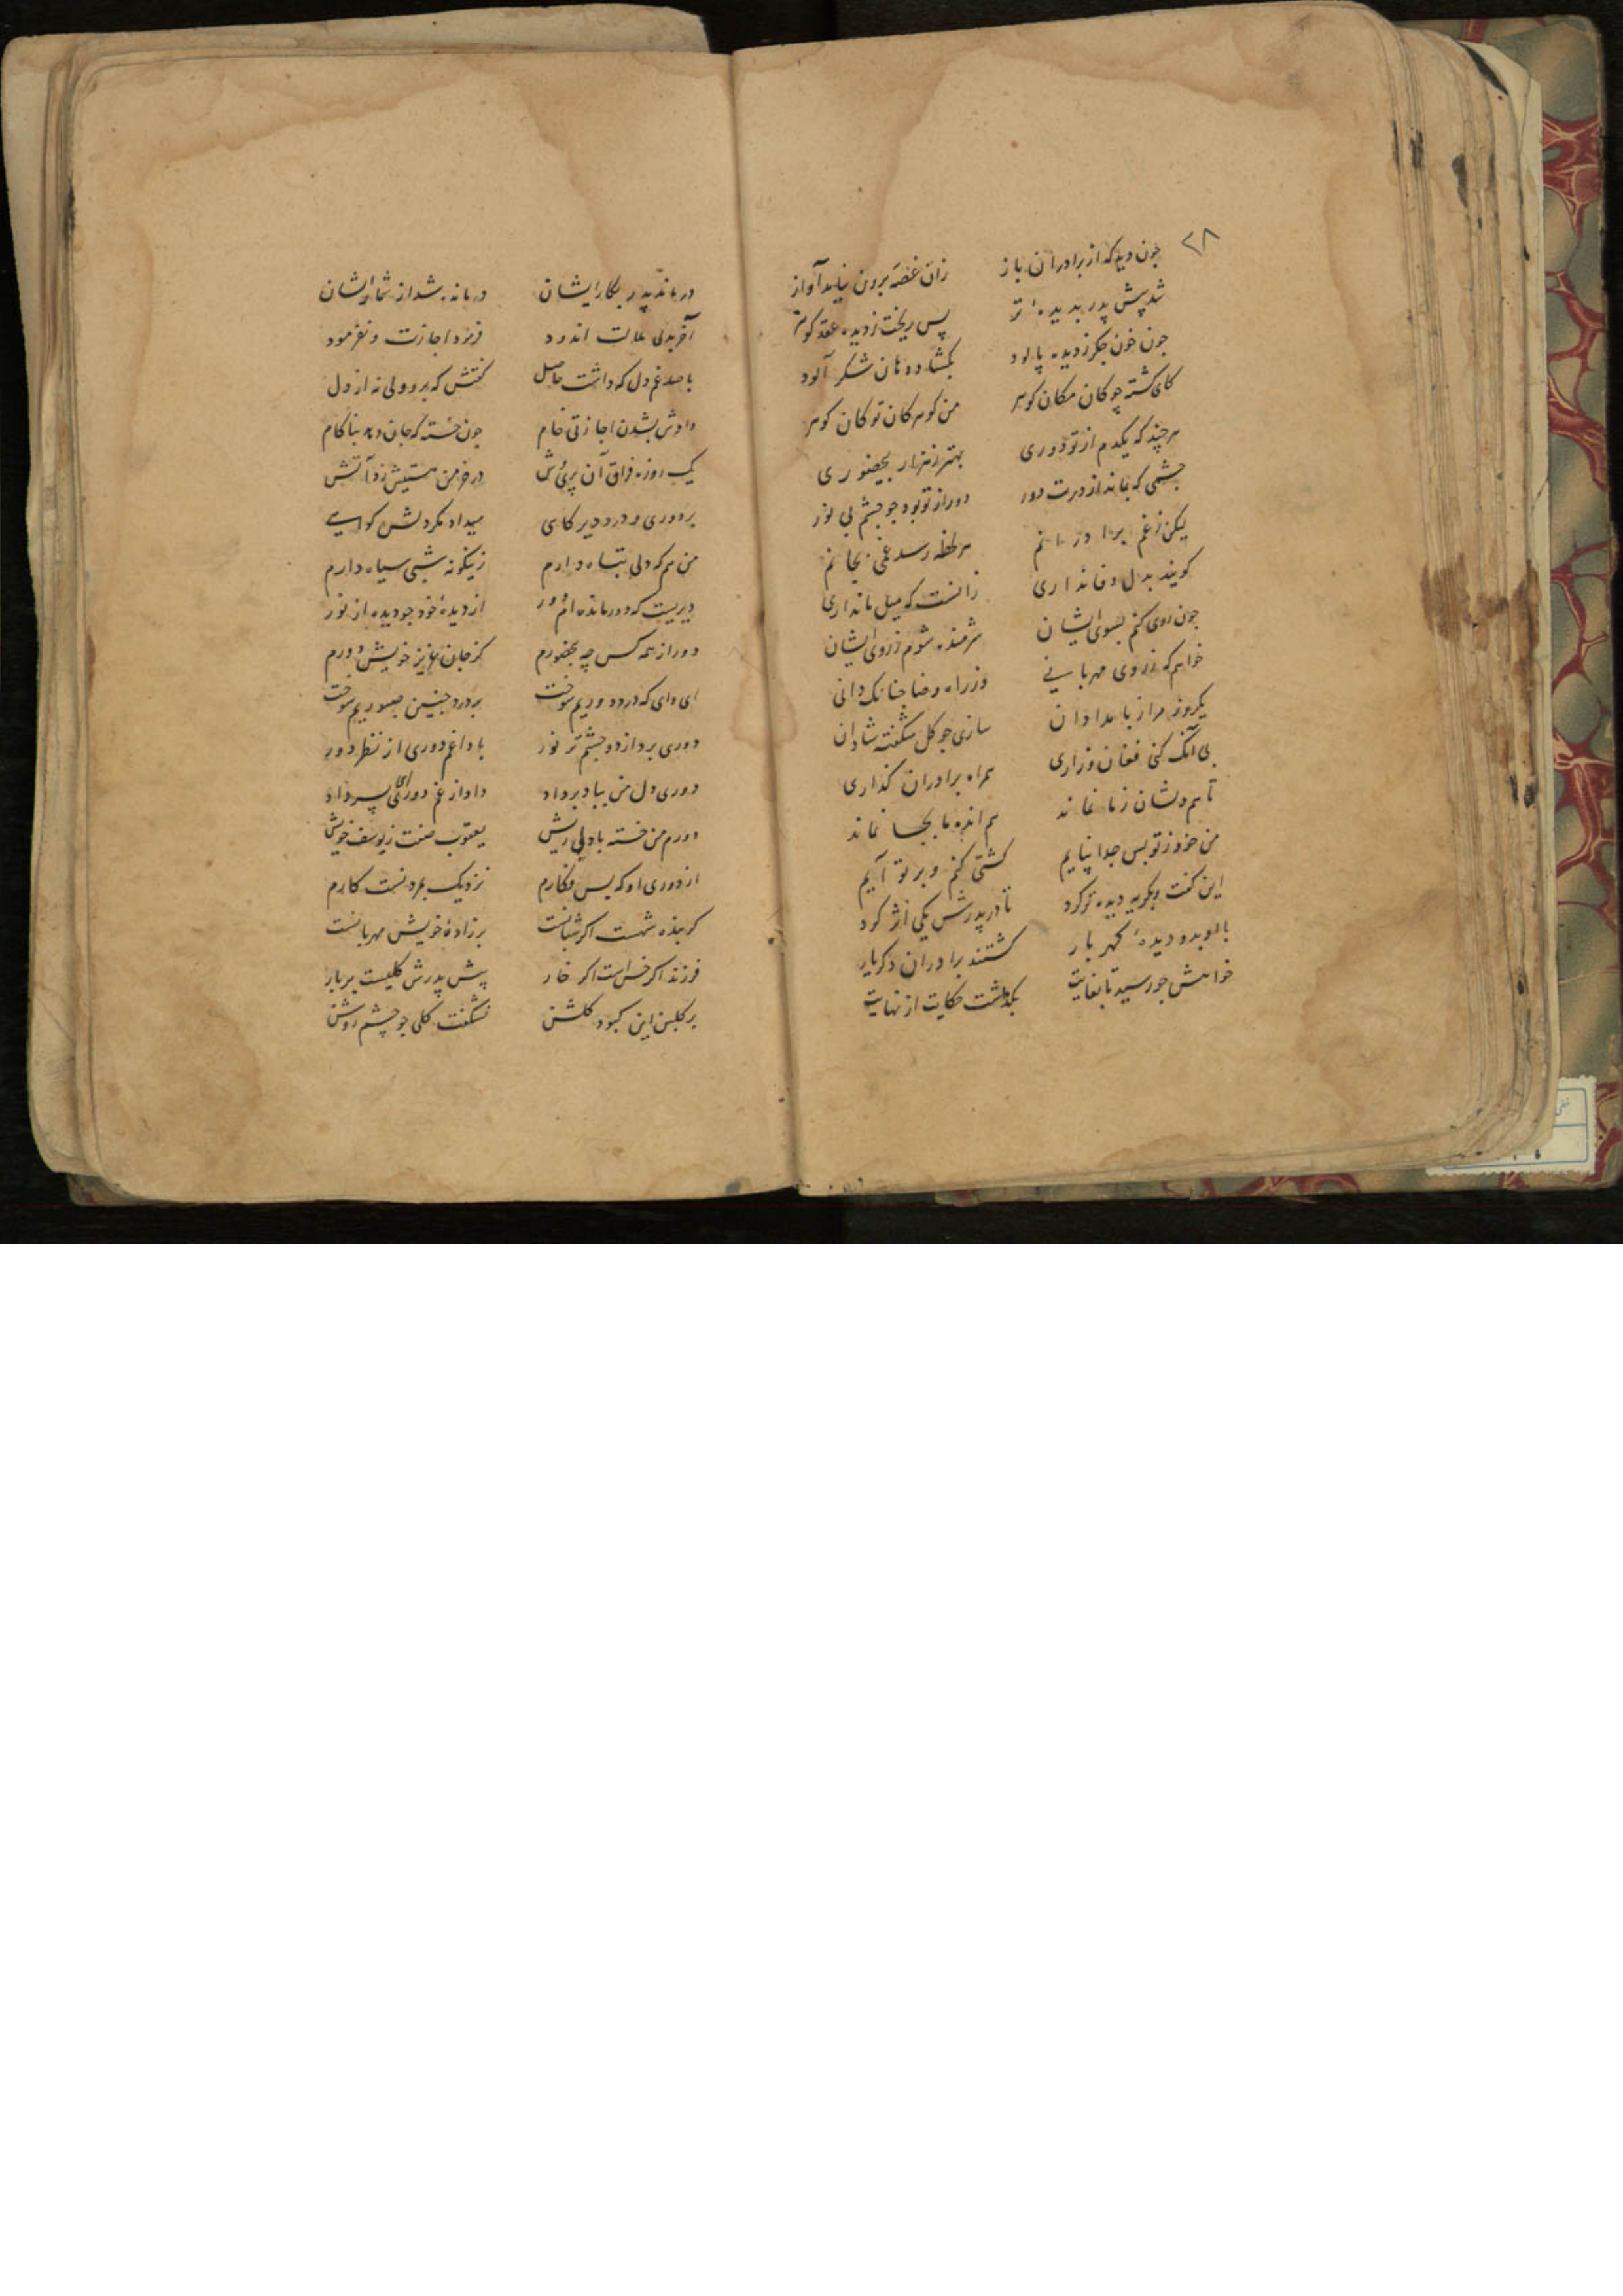 ۲۸
چون دید که از برادران باز زان غصه برون نیاید آواز
شد پیش پدر بدیدهٔ تر پس ریخت ز دیده عقد کوهر
چون خون جکر ز دیده پالود بکشاد دهان شکر آلود
کای کشته چو کان مکان کوهر من کوهر کان تو کان کوهر
هر چند که یکدم از تو دوری بهتر ز هزار بیحضوری
چشمی که بماند از درت دور دور از تو بود چو چشم بی نور
لیکن ز غم برادرانم هر لحظه رسد غمی بجانم
کویند بدل وفا نداری زانست که میل ما نداری
چون روی کنم بسوی ایشان شرمنده شوم ز روی ایشان
خواهم که ز روی مهربانی وز راه رضا چنانک دانی
یکروز مرا ز بامدادان سازی چو کل شکفته شادان
بی آنک کنی فغان و زاری همراه برادران کذاری
تا هم دلشان ز ما نماند هم انده ما بجا نماند
من خود ز تو بس جدا نیایم کشتی کنم و بر تو آیم
این کفت و بکریه دیده تر کرد تا در پدرش یکی اثر کرد
با او بدو دیدهٔ کهربار کشتند برادران دکر یار
خواهش چو رسید تا بغایت بکذشت حکایت از نهایت
در ماند پدر بکار ایشان درمانده شد از شمار ایشان
آخر بدلی ملالت اندود فرمود اجازت و نفرمود
با صد غم دل که داشت حاصل کفتش که برو ولی نه از دل
دادش بشدن اجازتی خام چون خسته که جان دهد بناکام
یک روزه فراق آن پریوش در خرمن هستیش زد آتش
بر دوری و درد دیر کاهی میداد مکر دلش کواهی
من هم که دلی تباه دارم زینکونه شبی سیاه دارم
دیریست که دور مانده ام دور از دیدهٔ خود چو دیده از نور
دور از همه کس چه بیحضورم کز جان عزیز خویش دورم
ای وای که درد دوریم سوخت بر درد چنین صبوریم سوخت
دوری برد از دو چشم تر نور با داغم دوری از نظر دور
دوری دل من بباد برداد داد از غم دوری ای پسر داد
دورم من خسته با دلی ریش یعقوب صفت ز یوسف خویش
از دوری او که بس فکارم نزدیک بمردنست کارم
کر بنده شهست اکر شبانست بر زادهٔ خویش مهربانست
فرزند اکر خس است اکر خار پیش پدرش کلیست بربار
بر کلبن این کبود کلشن نشکفت کلی چو چشم روشن